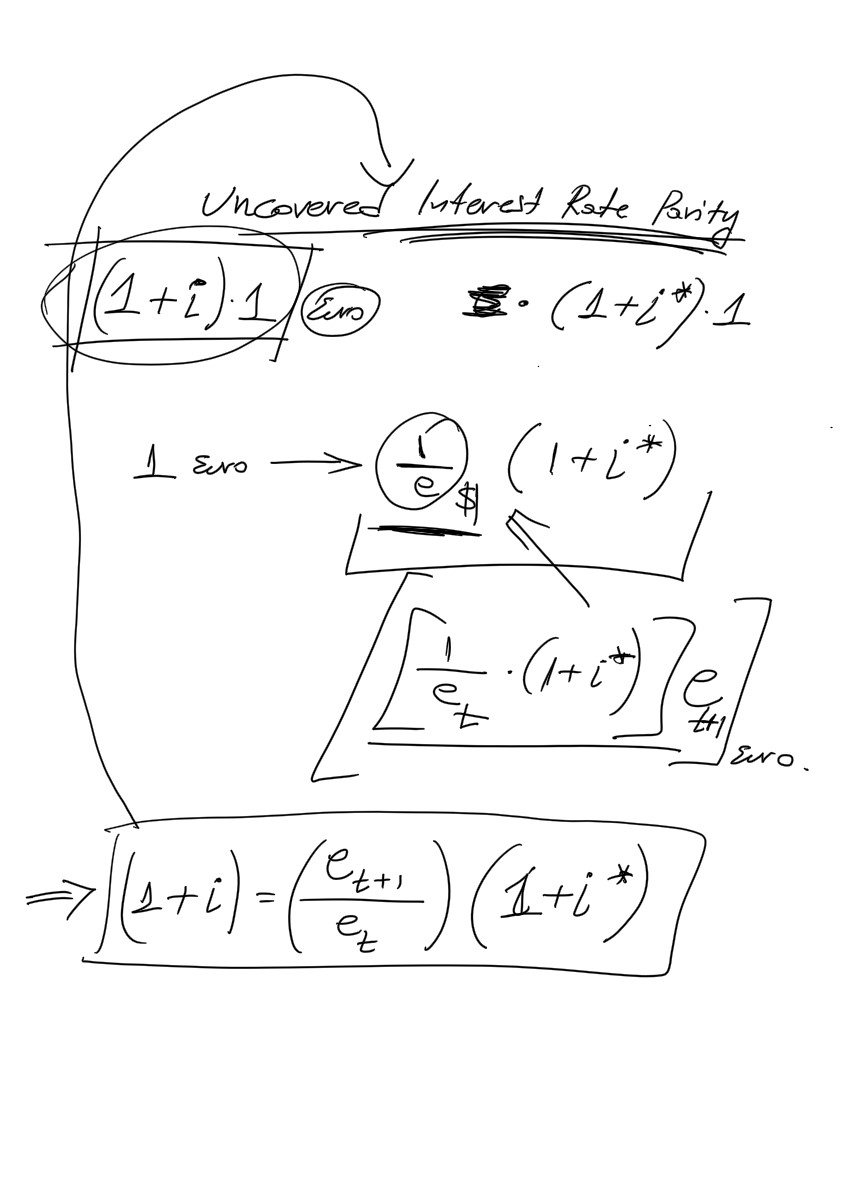 Uncovered Interest Rate Parity
(1+i)·1 Euro · (1+i*)·1
1 Euro → 1/e $ (1+i*)
[[1/e_t · (1+i*)] e_t+1] Euro.
⇒ (1+i) = (e_t+1/e_t) (1+i*)